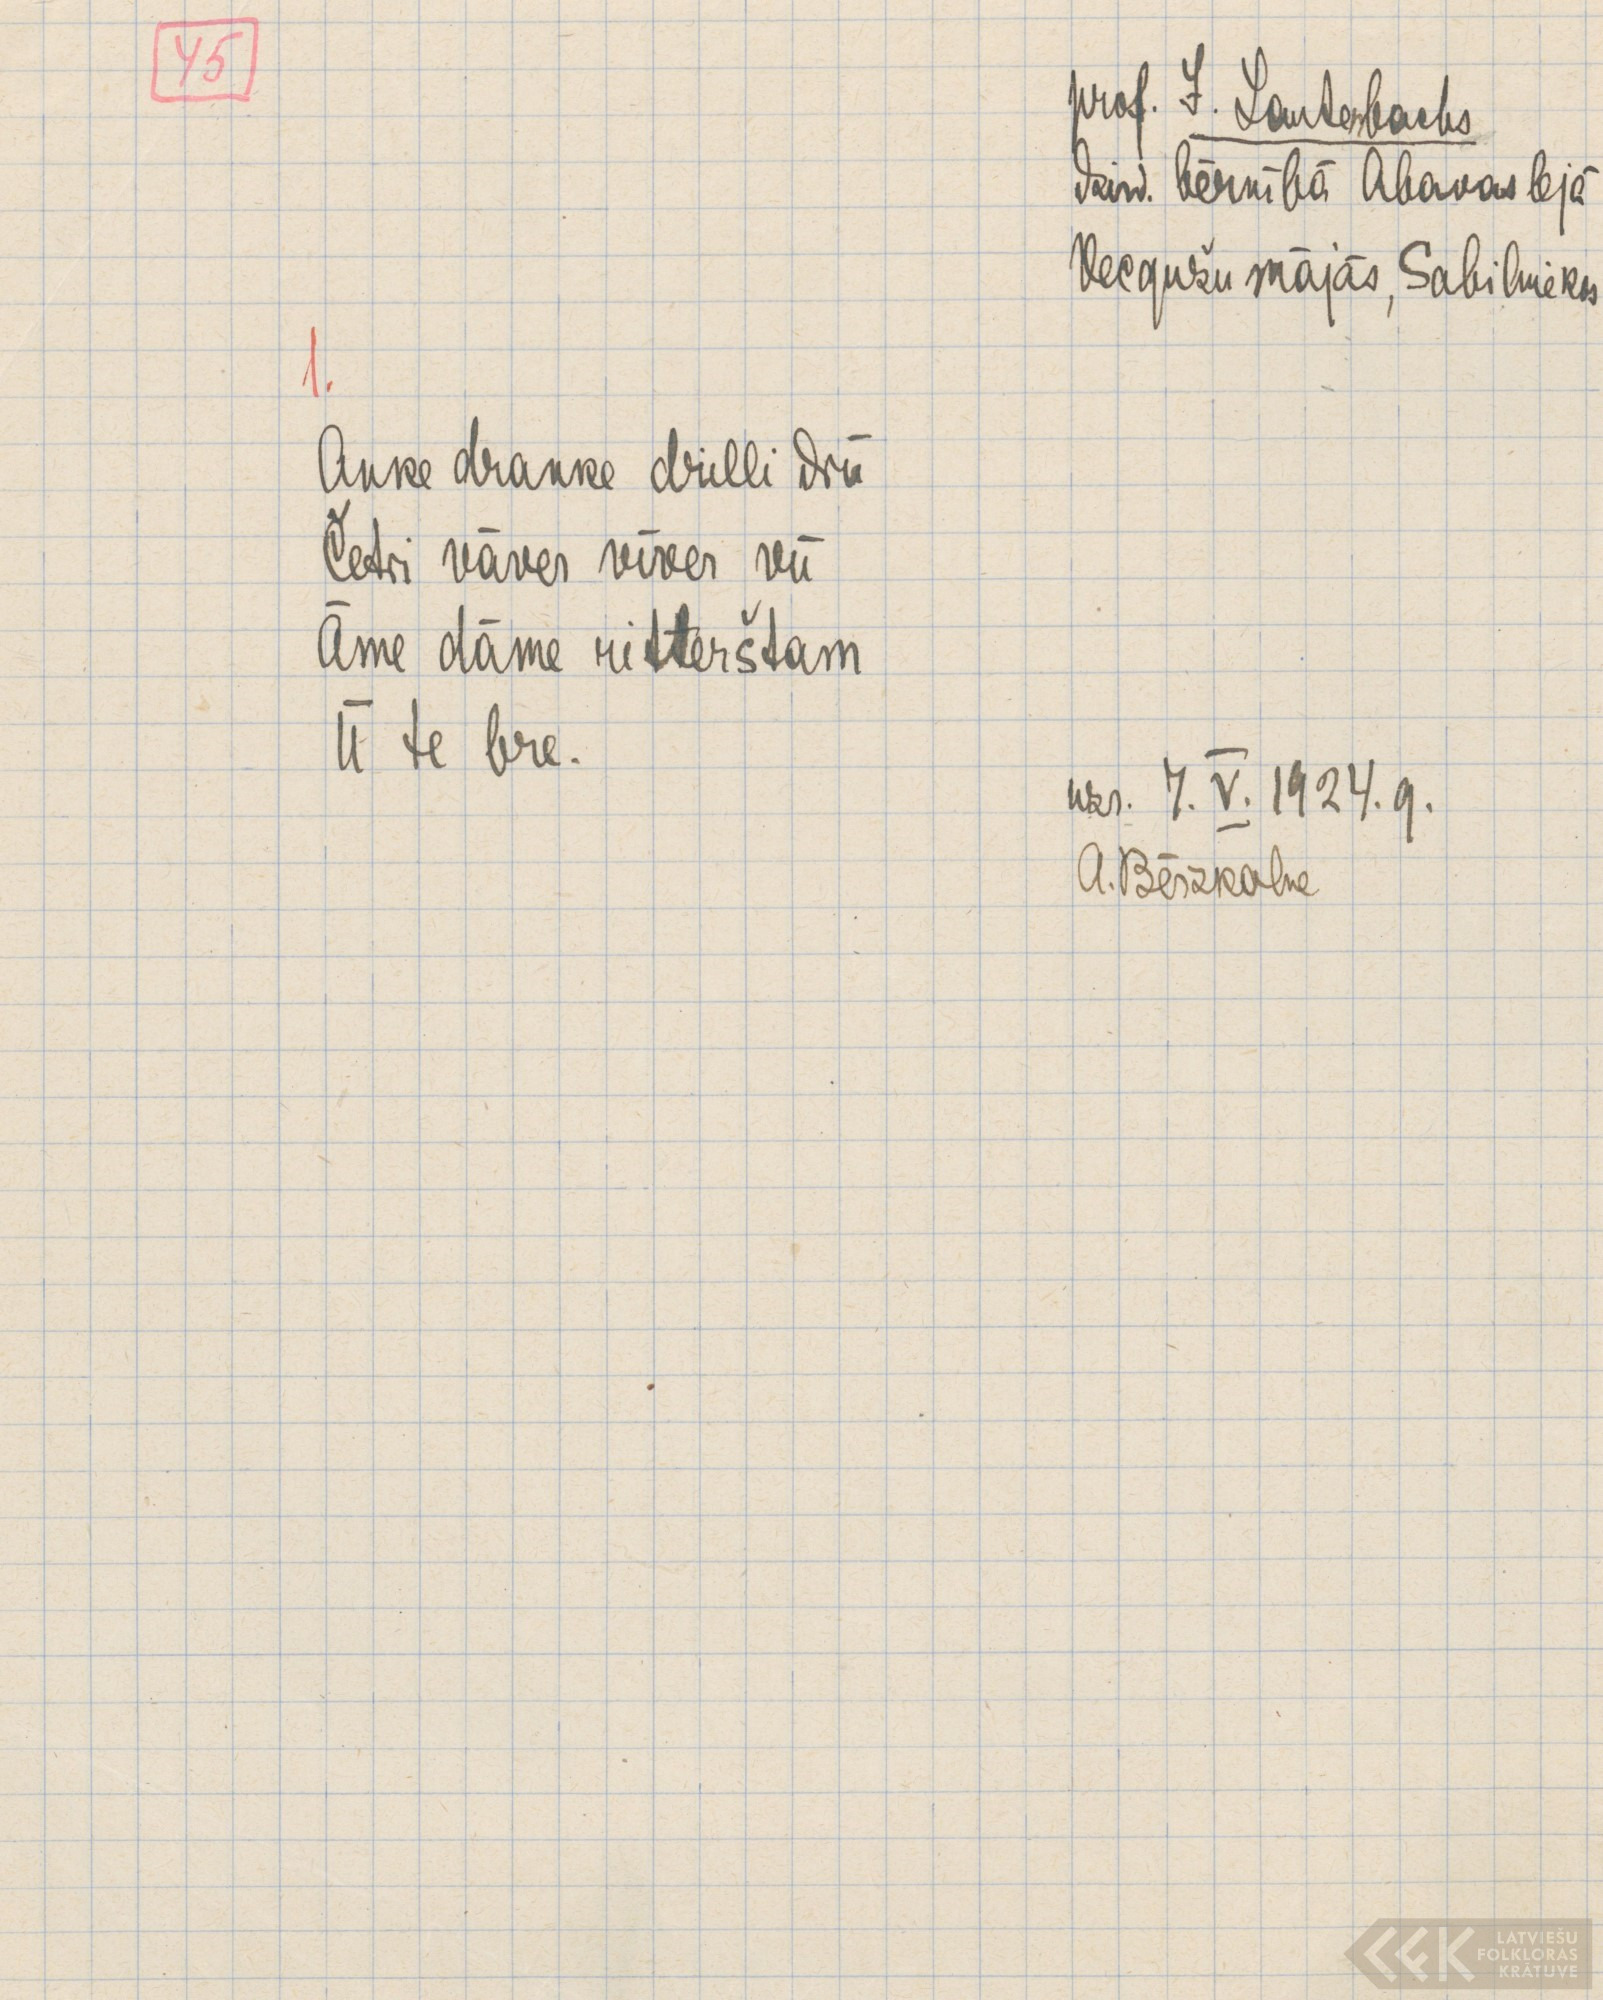 45
prof. J. Lautenbachs
dzird. bērnībā Abavas lejā
Vecgužu mājās, Sabilniekos
1.
Anke dranke drilli drū
Četri vāver vīver vū
Āme dāme ritterštam
Ū te bre.
uzr. 7. V. 1924. g.
A. Bērzkalne
LATVIEŠU
FOLKLORAS
KRĀTUVE